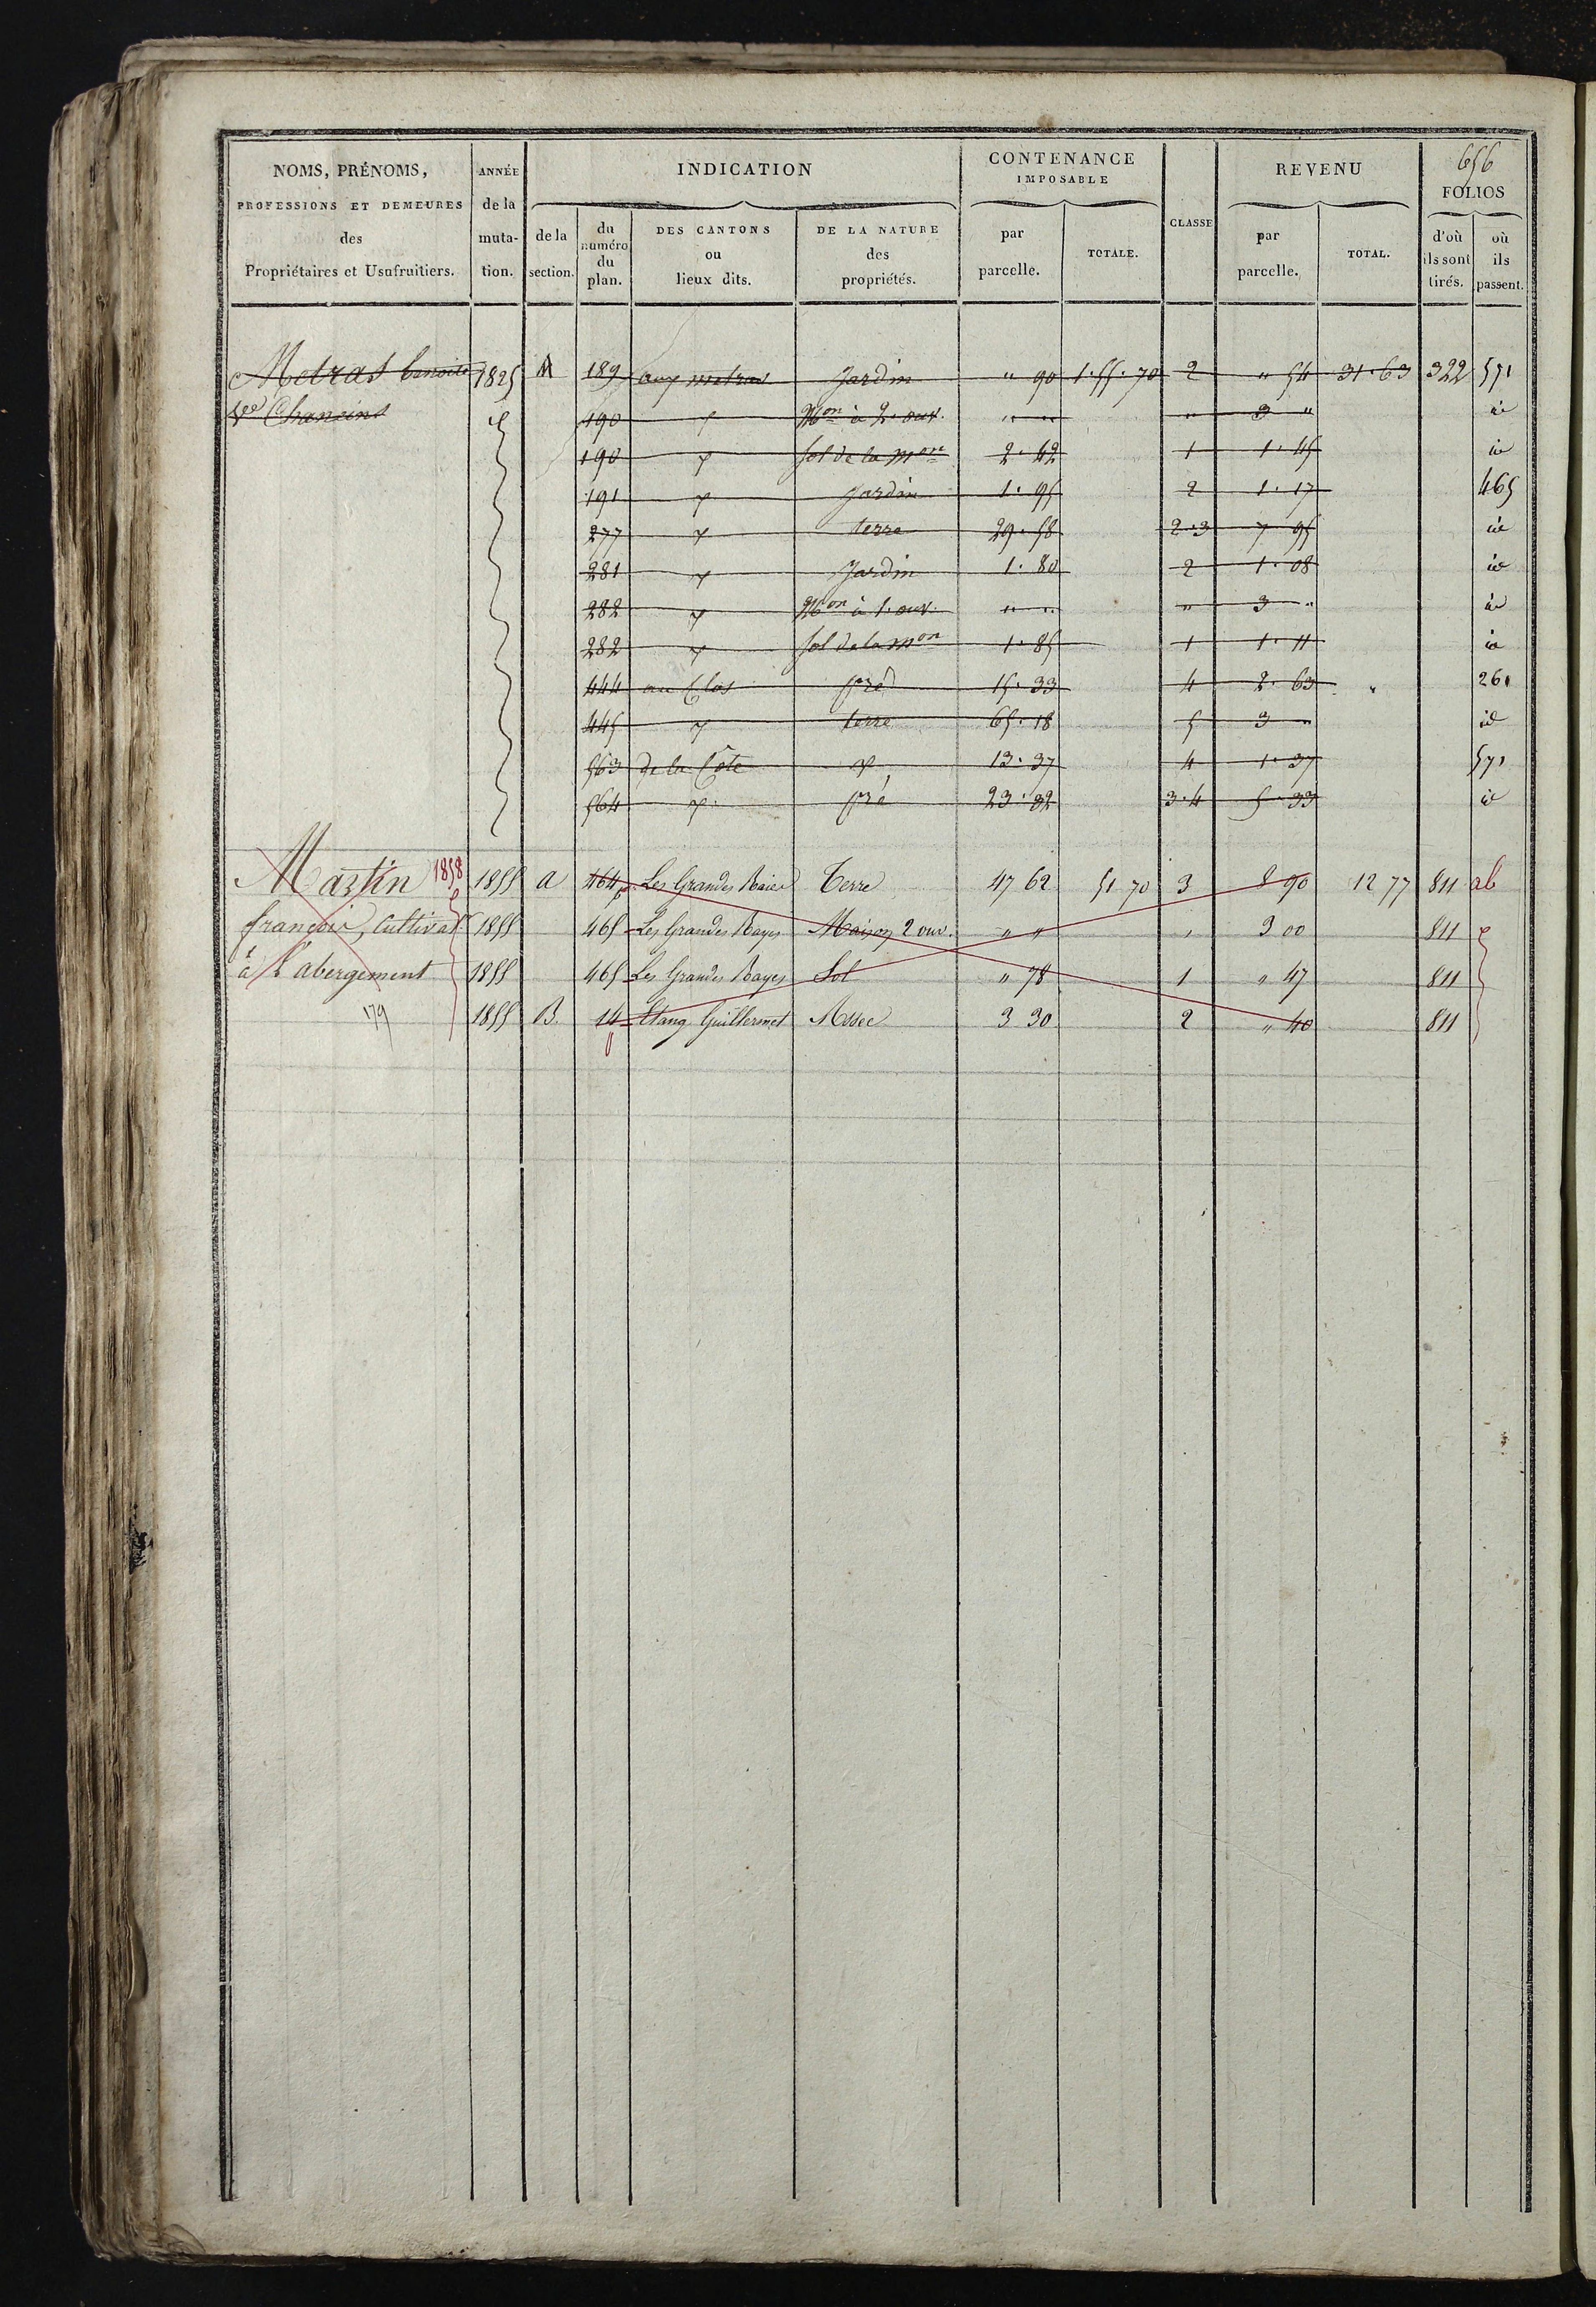 656
NOMS, PRÉNOMS, PROFESSIONS ET DEMEURES des Propriétaires et Usufruitiers. ANNÉE de la mutation. INDICATION CONTENANCE IMPOSABLE CLASSE REVENU FOLIOS
de la section. du numéro du plan. DES CANTONS ou lieux dits. DE LA NATURE des propriétés. par parcelle. TOTALE. par parcelle. TOTAL. d'où ils sont tirés. où ils passent.
Metras benoite 1825 M 189 aux metras Jardin " 90 1.55.70 2 " 54 31.63 322 571
Vve Chaneins 190 Mon à 2. ouv. " " " 3 " id
190 sol de la mon 2.42 1 1.45 id
191 Jardin 1.95 2 1.17 465
277 terre 29.58 2.3 7 95 id
281 Jardin 1.80 2 1.08 id
282 Mon à 1. ouv. " " " 3 " id
282 sol de la mon 1.85 1 1.11 id
444 au Clos pré 15.33 4 2.63 261
445 terre 65.18 5 3 " id
563 de la Côte 13.37 4 1.37 571
564 pré 23.32 3.4 5.33 id
Martin 1858 1855 a 464 p Les Grandes Raies Terre 47 62 51 70 3 8 90 12 77 811 ab
françois, Cultivat 1855 465 Les Grandes Rayes Maison 2 ouv. " " " 3 00 811
à l'abergement 1855 465 Les Grandes Rayes Sol " 78 1 " 47 811
179 1855 B. 14 Etang Guillermet Assec 3 30 2 " 40 811